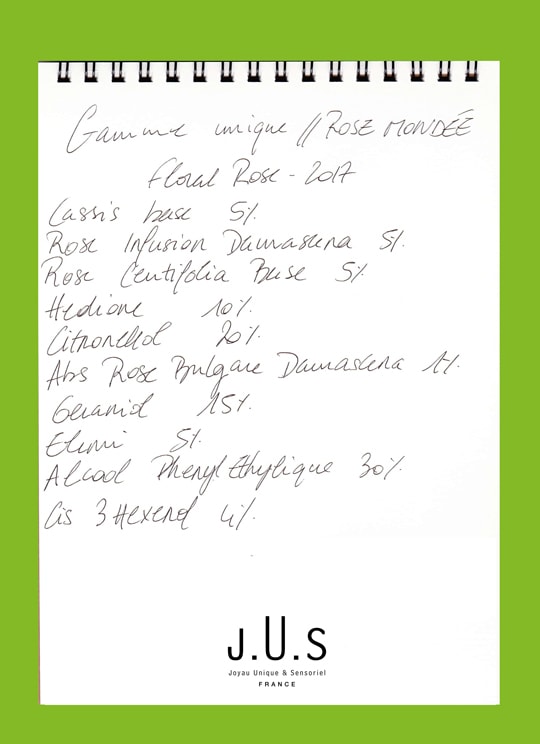 Gamme unique // ROSE MONDÉE
Floral Rose - 2017
Cassis base 5%.
Rose Infusion Damascena 5%.
Rose Centifolia Base 5%
Hedione 10%.
Citronellol 20%.
Abs Rose Bulgare Damascena 1%.
Geraniol 15%.
Elemi 5%.
Alcool Phenyl Ethylique 30%.
Cis 3 Hexenol 4%.
J.U.S
Joyau Unique & Sensoriel
FRANCE